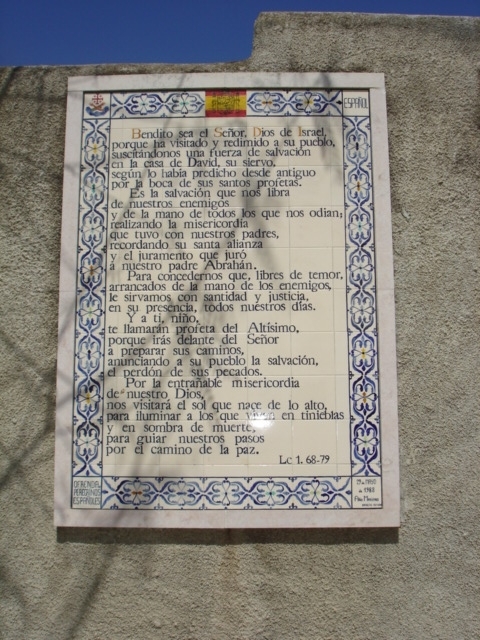 ESPAÑOL
Bendito sea el Señor, Dios de Israel,
porque ha visitado y redimido a su pueblo,
suscitándonos una fuerza de salvación
en la casa de David, su siervo,
según lo había predicho desde antiguo
por la boca de sus santos profetas.
Es la salvación que nos libra
de nuestros enemigos
y de la mano de todos los que nos odian;
realizando la misericordia
que tuvo con nuestros padres,
recordando su santa alianza
y el juramento que juró
a nuestro padre Abrahán.
Para concedernos que, libres de temor,
arrancados de la mano de los enemigos,
le sirvamos con santidad y justicia,
en su presencia, todos nuestros días.
Y a ti, niño,
te llamarán profeta del Altísimo,
porque irás delante del Señor
a preparar sus caminos,
anunciando a su pueblo la salvación,
el perdón de sus pecados.
Por la entrañable misericordia
de nuestro Dios,
nos visitará el sol que nace de lo alto,
para iluminar a los que viven en tinieblas
y en sombra de muerte,
para guiar nuestros pasos
por el camino de la paz.
Lc 1. 68-79
OFRENDA
PEREGRINOS
ESPAÑOLES